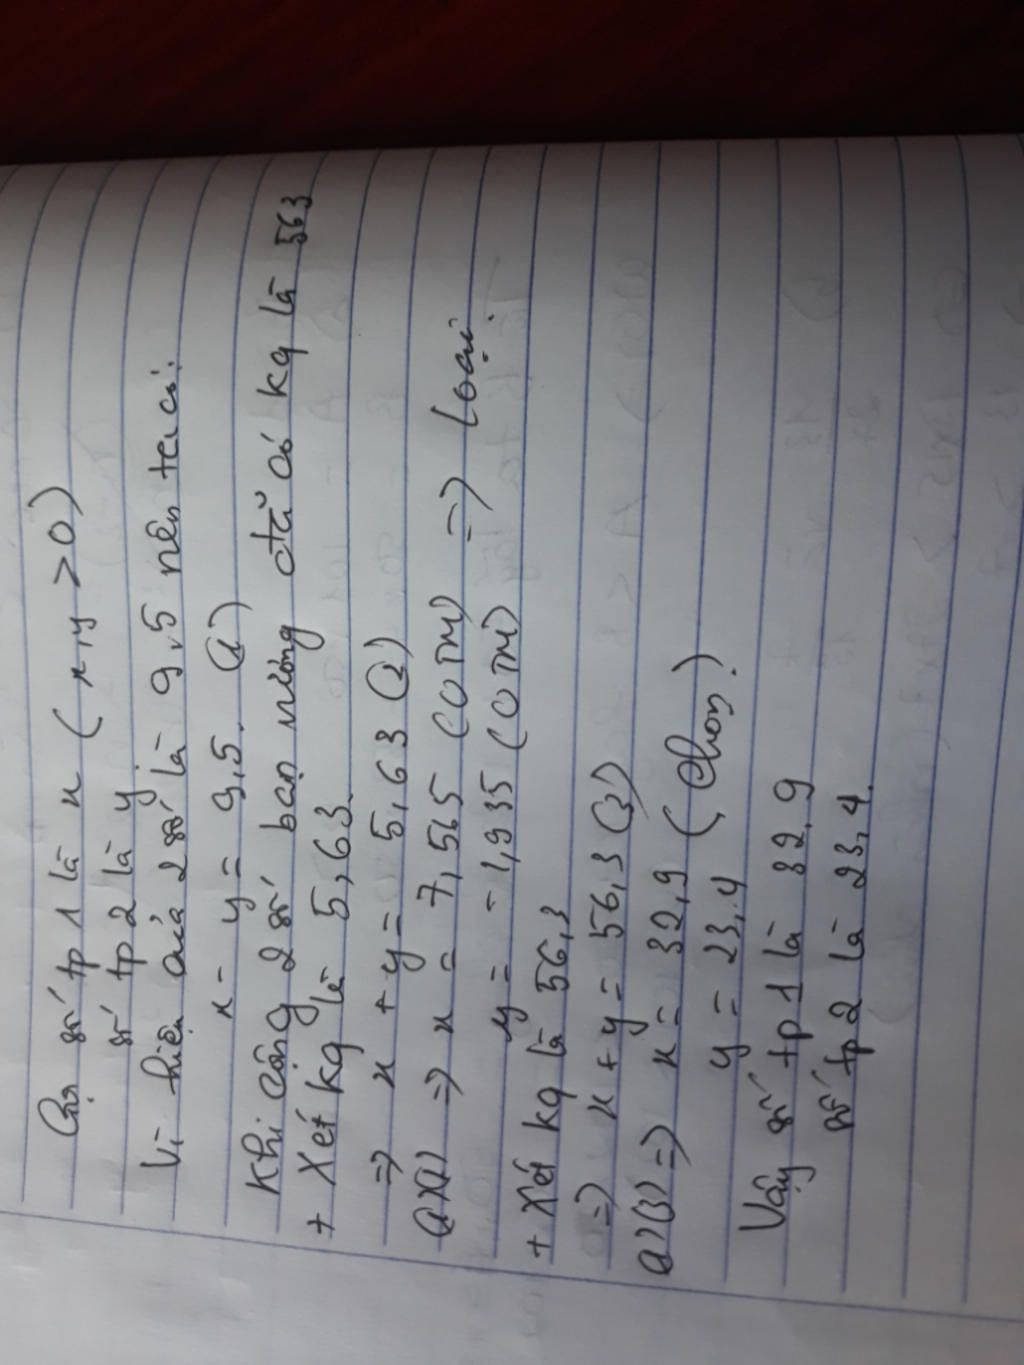 Gọi số tp 1 là x (x,y > 0)
số tp 2 là y
Vì hiệu của 2 số là 9,5 nên ta có:
x - y = 9,5. (1)
Khi cộng 2 số bạn Mường đã có kq là 563
+ Xét kq là 5,63.
=> x + y = 5,63 (2)
(1)(2) => x = 7,565 (0 TM) => Loại.
y = -1,935 (0 TM)
+ Xét kq là 56,3
=> x + y = 56,3 (3)
(1)(3) => x = 32,9 (Chọn).
y = 23,4
Vậy số tp 1 là 32,9
số tp 2 là 23,4.